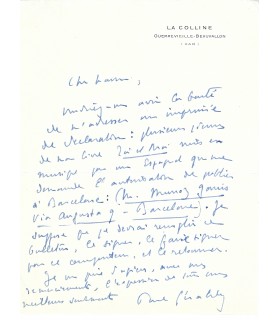 LA COLLINE
GUERREVIEILLE-BEAUVALLON
(VAR)
Cher
Voudriez-vous avoir la bonté
de m'adresser un imprimé
de déclaration : plusieurs pièces
de mon livre Toi et Moi mises en
musique par un Espagnol qui me
demande l'autorisation de publier
à Barcelone : (M. Munoz
Via Augusta 9 - Barcelone). Je
suppose que je devrai remplir ce
bulletin, le signer, le faire signer
par ce compositeur, et le retourner.
Je vous prie d'agréer, avec mes
remerciements, l'expression de mes
meilleurs sentiments
Paul Géraldy